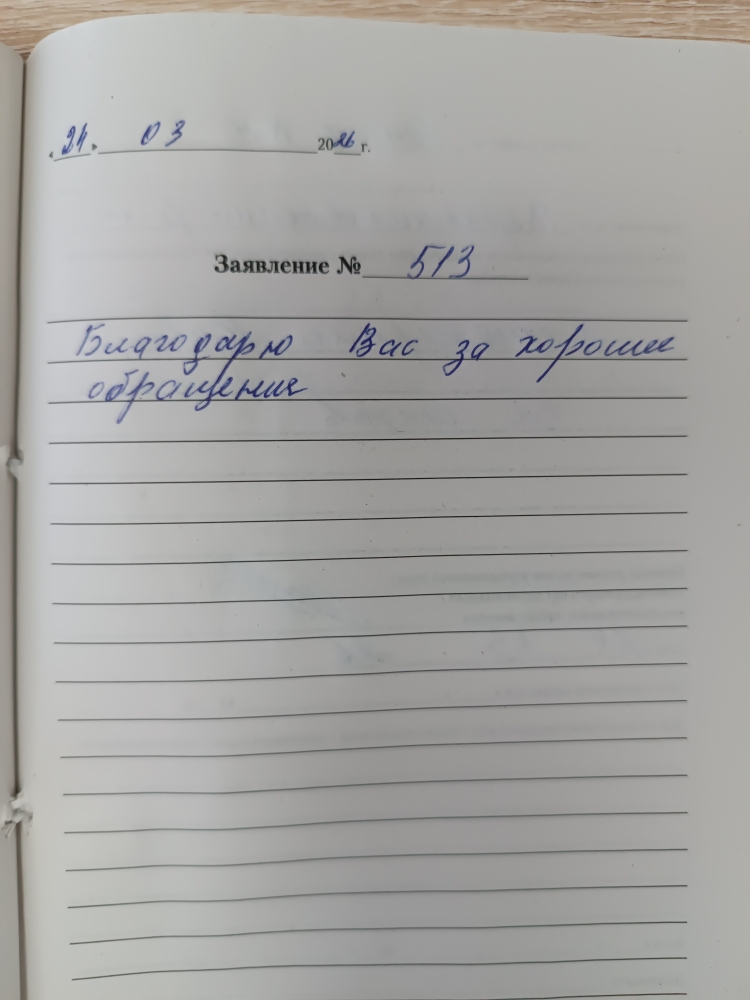 «24» 03 2026 г.
Заявление № 513
Благодарю Вас за хорошее
обращение